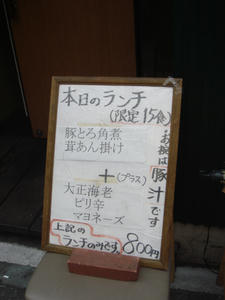 本日のランチ
(限定15食)
豚とろ角煮
茸あん掛け
＋(プラス)
大正海老
ピリ辛
マヨネーズ
お椀は「豚汁」です
上記の
ランチの内です。800円